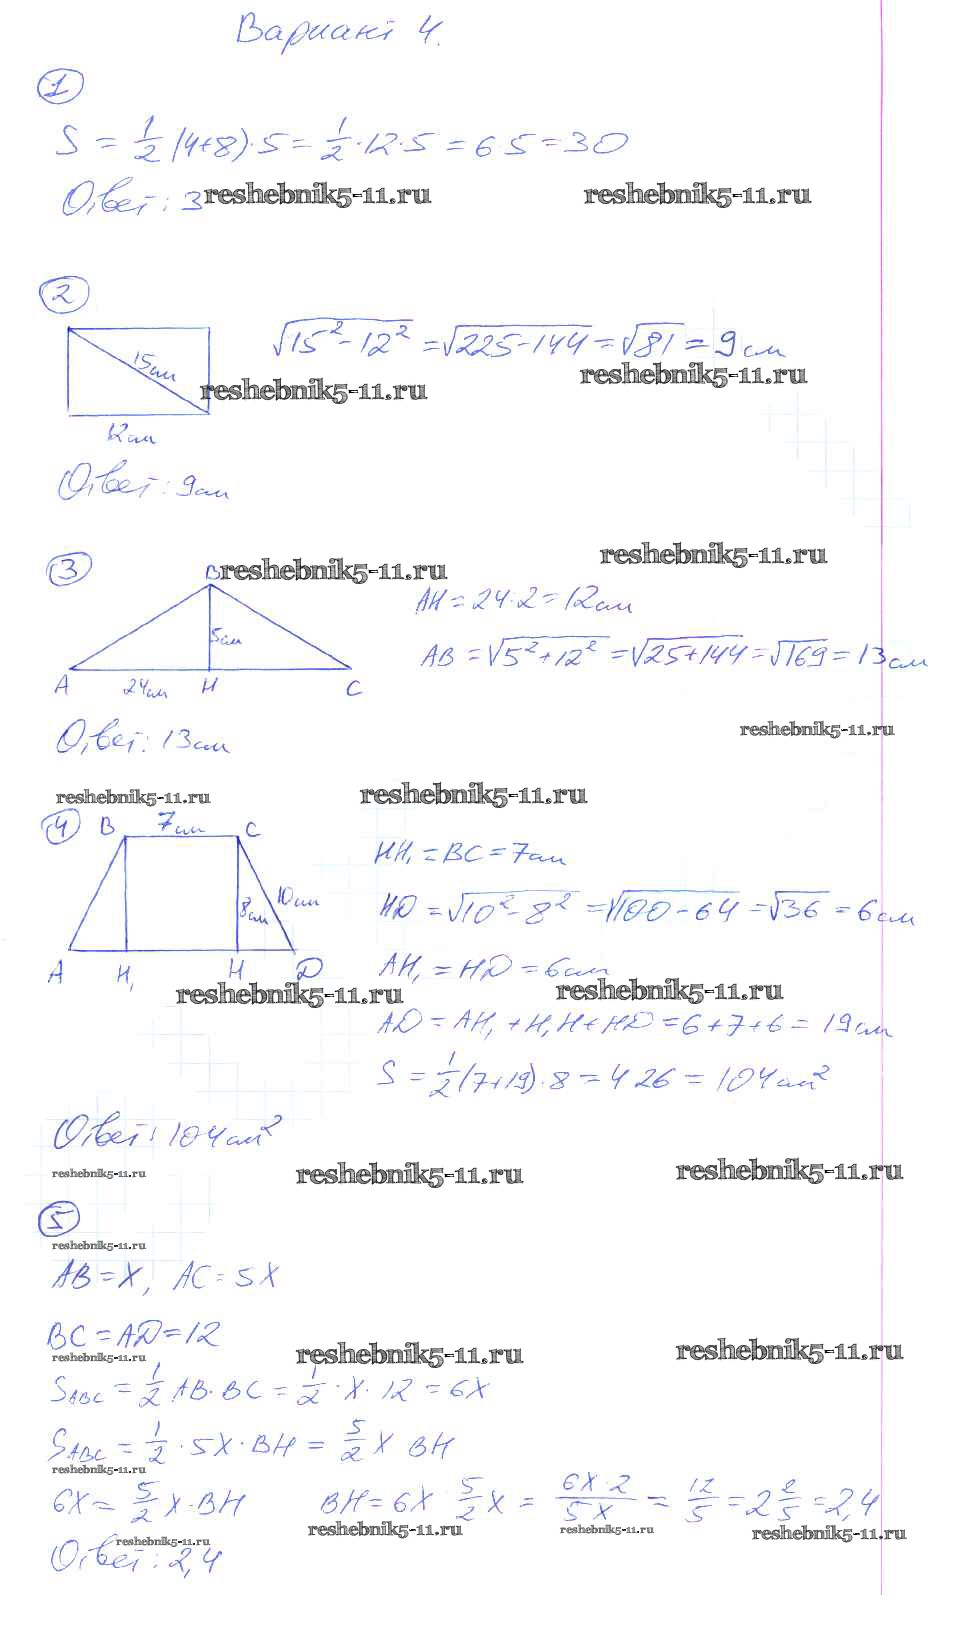 Вариант 4.
1
S = 1/2 (4+8)·5 = 1/2 ·12·5 = 6 5 = 30
Ответ: 3
reshebnik5-11.ru reshebnik5-11.ru
2
√15² - 12² = √225-144 = √81 = 9 см
15см
reshebnik5-11.ru reshebnik5-11.ru
12см
Ответ: 9см
reshebnik5-11.ru
3
B
reshebnik5-11.ru
AH = 24·2 = 12см
5см
AB = √5²+12² = √25+144 = √169 = 13см
A 24см H C
Ответ: 13см
reshebnik5-11.ru
reshebnik5-11.ru reshebnik5-11.ru
4 B 7см C
HH₁ = BC = 7см
8см 10см
HD = √10²-8² = √100-64 = √36 = 6см
A H₁ H D
AH₁ = HD = 6см
reshebnik5-11.ru reshebnik5-11.ru
AD = AH₁ + H₁H + HD = 6+7+6 = 19см
S = 1/2 (7+19)·8 = 4 26 = 104см²
Ответ: 104см²
reshebnik5-11.ru reshebnik5-11.ru reshebnik5-11.ru
5
reshebnik5-11.ru
AB = X, AC = 5X
BC = AD = 12
reshebnik5-11.ru reshebnik5-11.ru reshebnik5-11.ru
S ABC = 1/2 AB·BC = 1/2 · X · 12 = 6X
S ABC = 1/2 · 5X · BH = 5/2 X BH
reshebnik5-11.ru
6X = 5/2 X·BH BH = 6X 5/2 X = 6X·2/5X = 12/5 = 2 2/5 = 2,4
reshebnik5-11.ru reshebnik5-11.ru reshebnik5-11.ru
reshebnik5-11.ru
Ответ: 2,4